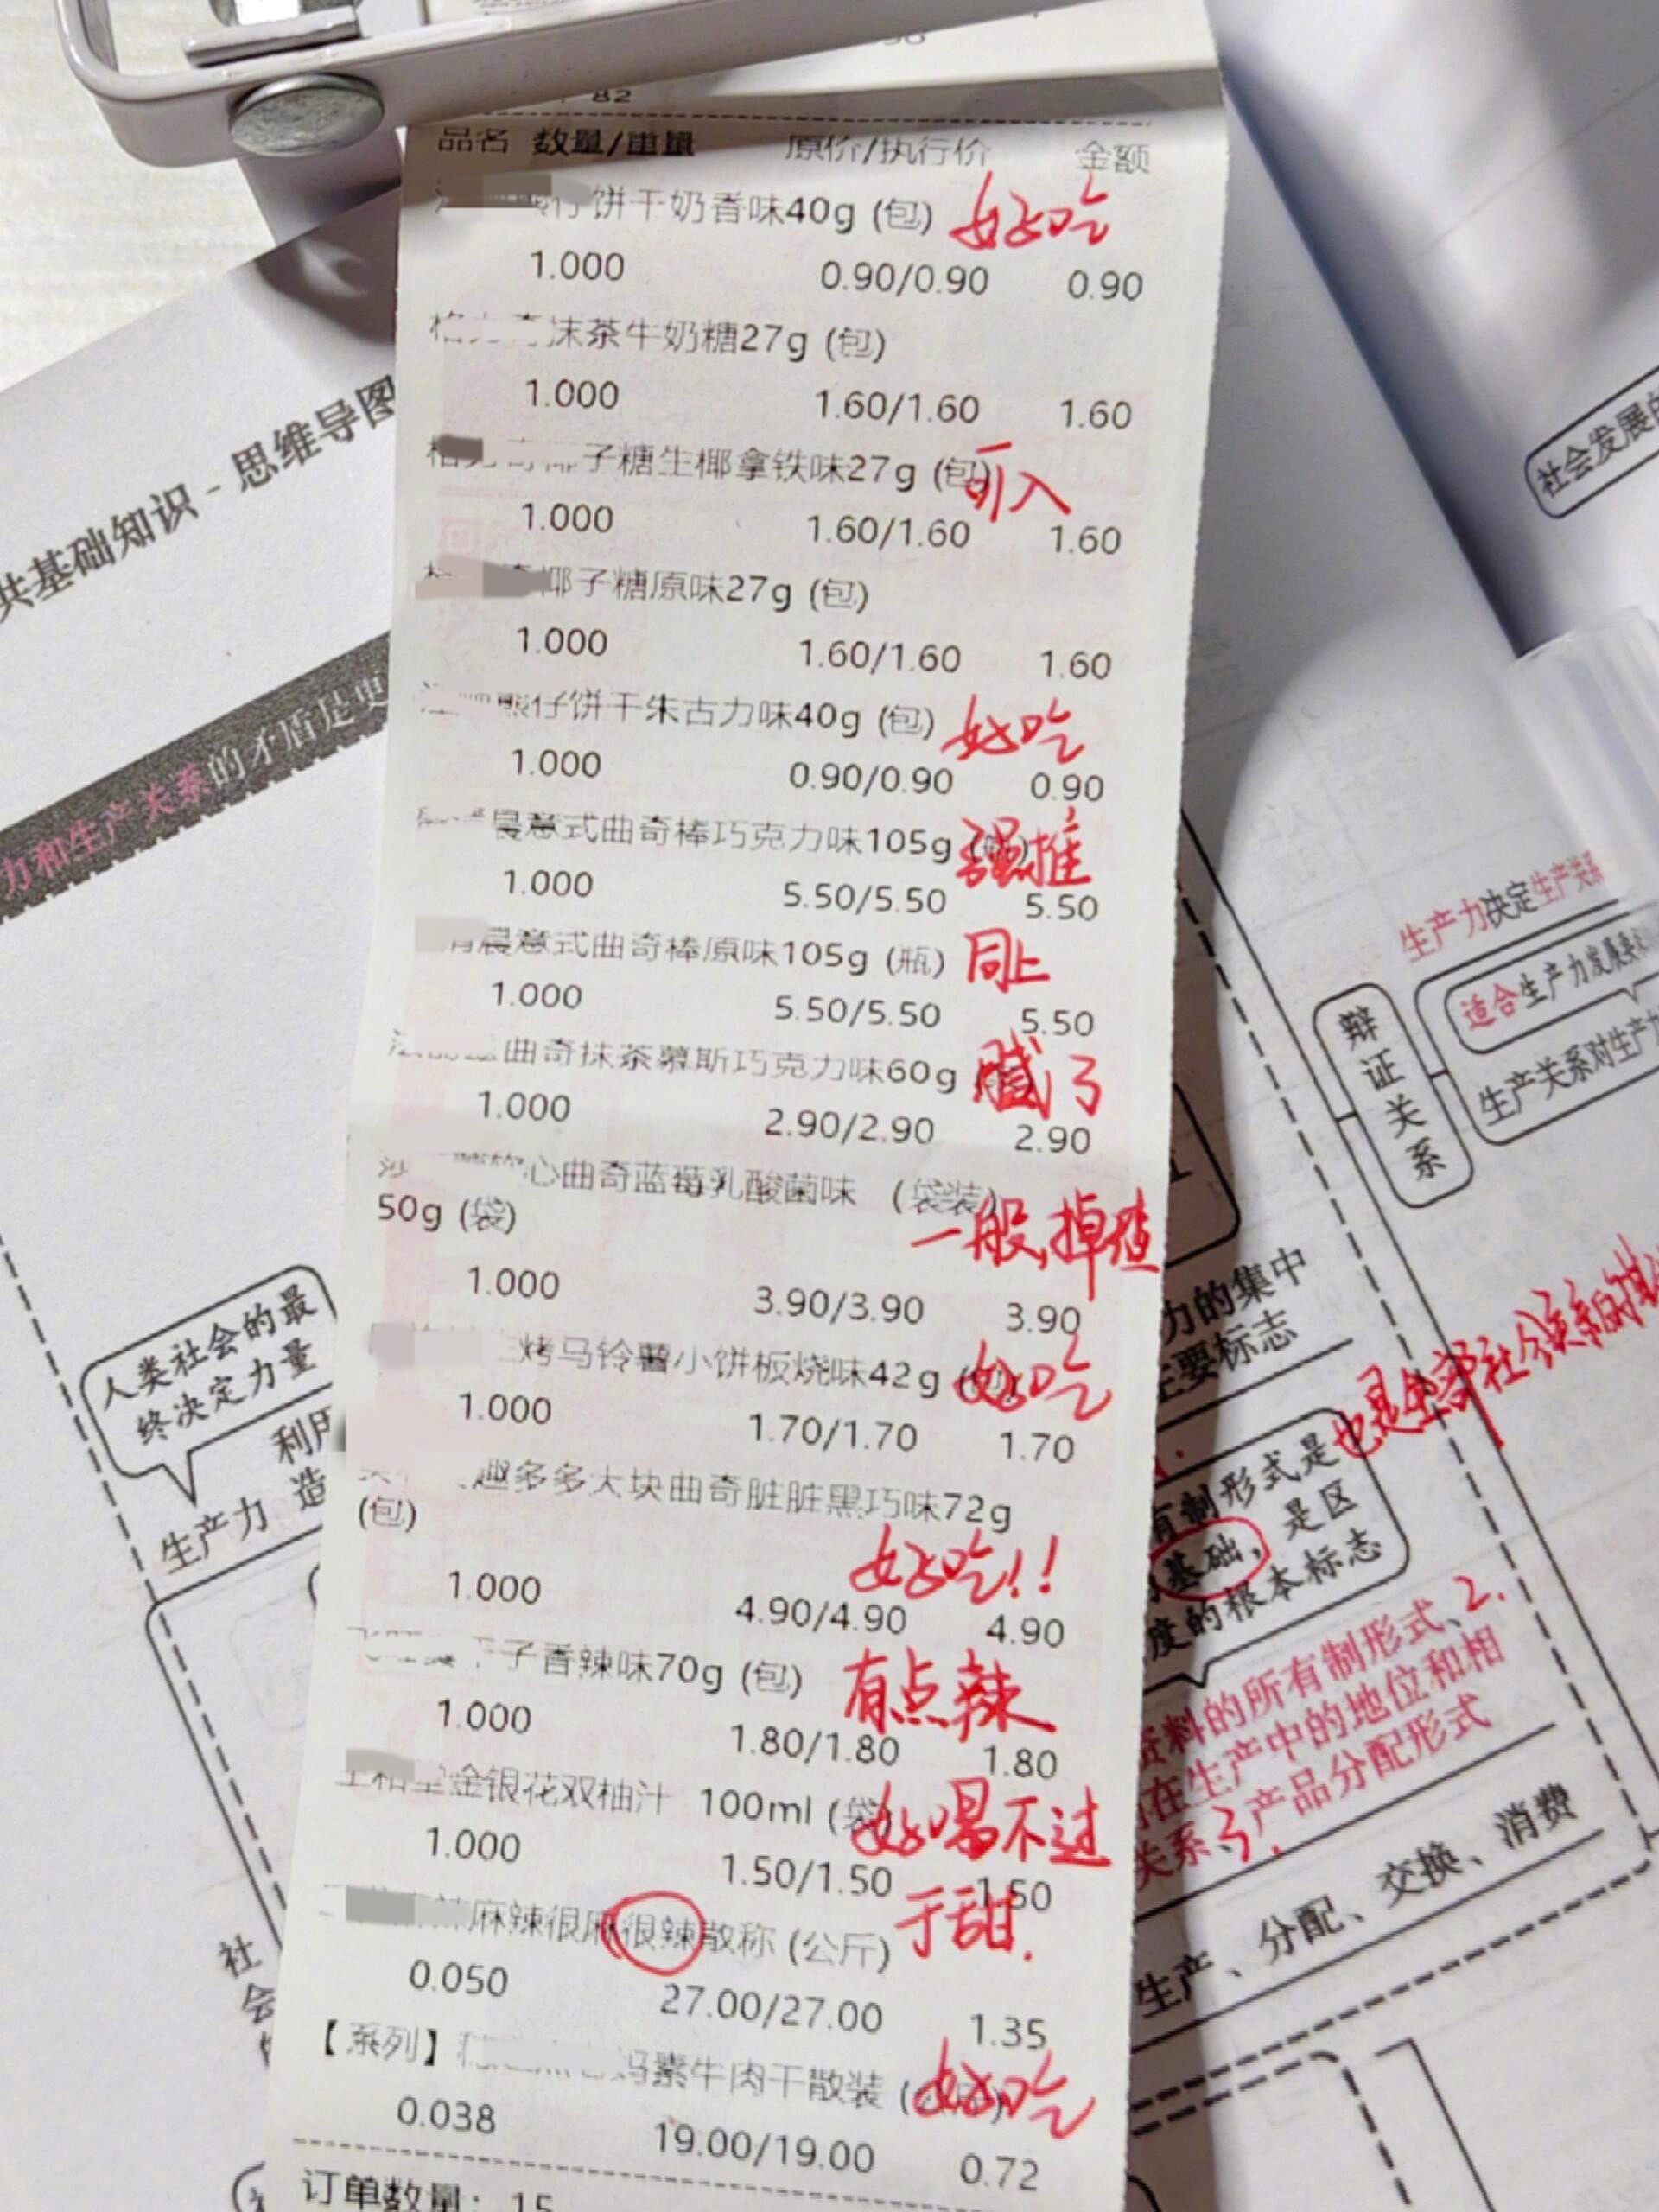 82
品名 数量/重量 原价/执行价 金额
仔饼干奶香味40g (包) 好吃
1.000 0.90/0.90 0.90
抹茶牛奶糖27g (包)
1.000 1.60/1.60 1.60
椰子糖生椰拿铁味27g (包) 可入
1.000 1.60/1.60 1.60
椰子糖原味27g (包)
1.000 1.60/1.60 1.60
熊仔饼干朱古力味40g (包) 好吃
1.000 0.90/0.90 0.90
晨意式曲奇棒巧克力味105g 强推
1.000 5.50/5.50 5.50
清晨意式曲奇棒原味105g (瓶) 同上
1.000 5.50/5.50 5.50
曲奇抹茶慕斯巧克力味60g 腻了
1.000 2.90/2.90 2.90
心曲奇蓝莓乳酸菌味 (袋装)
50g (袋) 一般,掉渣
1.000 3.90/3.90 3.90
烤马铃薯小饼板烧味42g 好吃
1.000 1.70/1.70 1.70
趣多多大块曲奇脏脏黑巧味72g
(包) 好吃!!
1.000 4.90/4.90 4.90
子香辣味70g (包) 有点辣
1.000 1.80/1.80 1.80
金银花双柚汁 100ml (袋) 好喝不过
1.000 1.50/1.50 1.50
于甜.
麻辣很麻很辣散称 (公斤)
0.050 27.00/27.00 1.35
【系列】 妈素牛肉干散装 好吃
0.038 19.00/19.00 0.72
订单数量: 15
共基础知识 - 思维导图
力和生产关系的矛盾是
人类社会的最
终决定力量
利用
生产力 造
社
会
社会发展的
生产力决定生产关系
适合生产力发展
生产关系对生产力
辩证关系
力的集中
主要标志
也是
有制形式是
基础,是区
度的根本标志
资料的所有制形式、2.
在生产中的地位和相
关系、3.产品分配形式
生产、分配、交换、消费